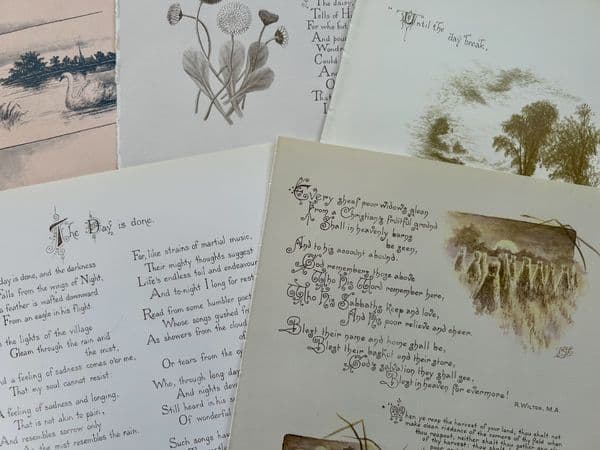 The daisy
Tells of H
For who but
And pou
Wondr
Could
An
O
That
"Until the day break,
The Day is done.
day is done, and the darkness
Falls from the wings of Night,
a feather is wafted downward
From an eagle in his flight
the lights of the village
Gleam through the rain and
the mist,
a feeling of sadness comes o'er me,
That my soul cannot resist
A feeling of sadness and longing,
That is not akin to pain,
And resembles sorrow only
As the mist resembles the rain.
For, like strains of martial music,
Their mighty thoughts suggest
Life's endless toil and endeavour
And to-night I long for rest
Read from some humbler poet
Whose songs gushed fr
As showers from the cloud
Or tears from the ey
Who, through long day
And nights devo
Still heard in his s
Of wonderful
Such songs have
Every sheaf poor widows glean
From a Christian's fruitful ground
Shall in heavenly barns
be seen,
And to his account abound.
God remembers those above
Who His Word remember here,
Who His Sabbaths keep and love,
And His poor relieve and cheer.
Blest their name and home shall be,
Blest their basket and their store,
God's salvation they shall see,
Blest in heaven for evermore!
R. Wilton, M.A.
"When ye reap the harvest of your land, thou shalt not
make clean riddance of the corners of thy field when
thou reapest, neither shalt thou gather any
of thy harvest: thou shalt